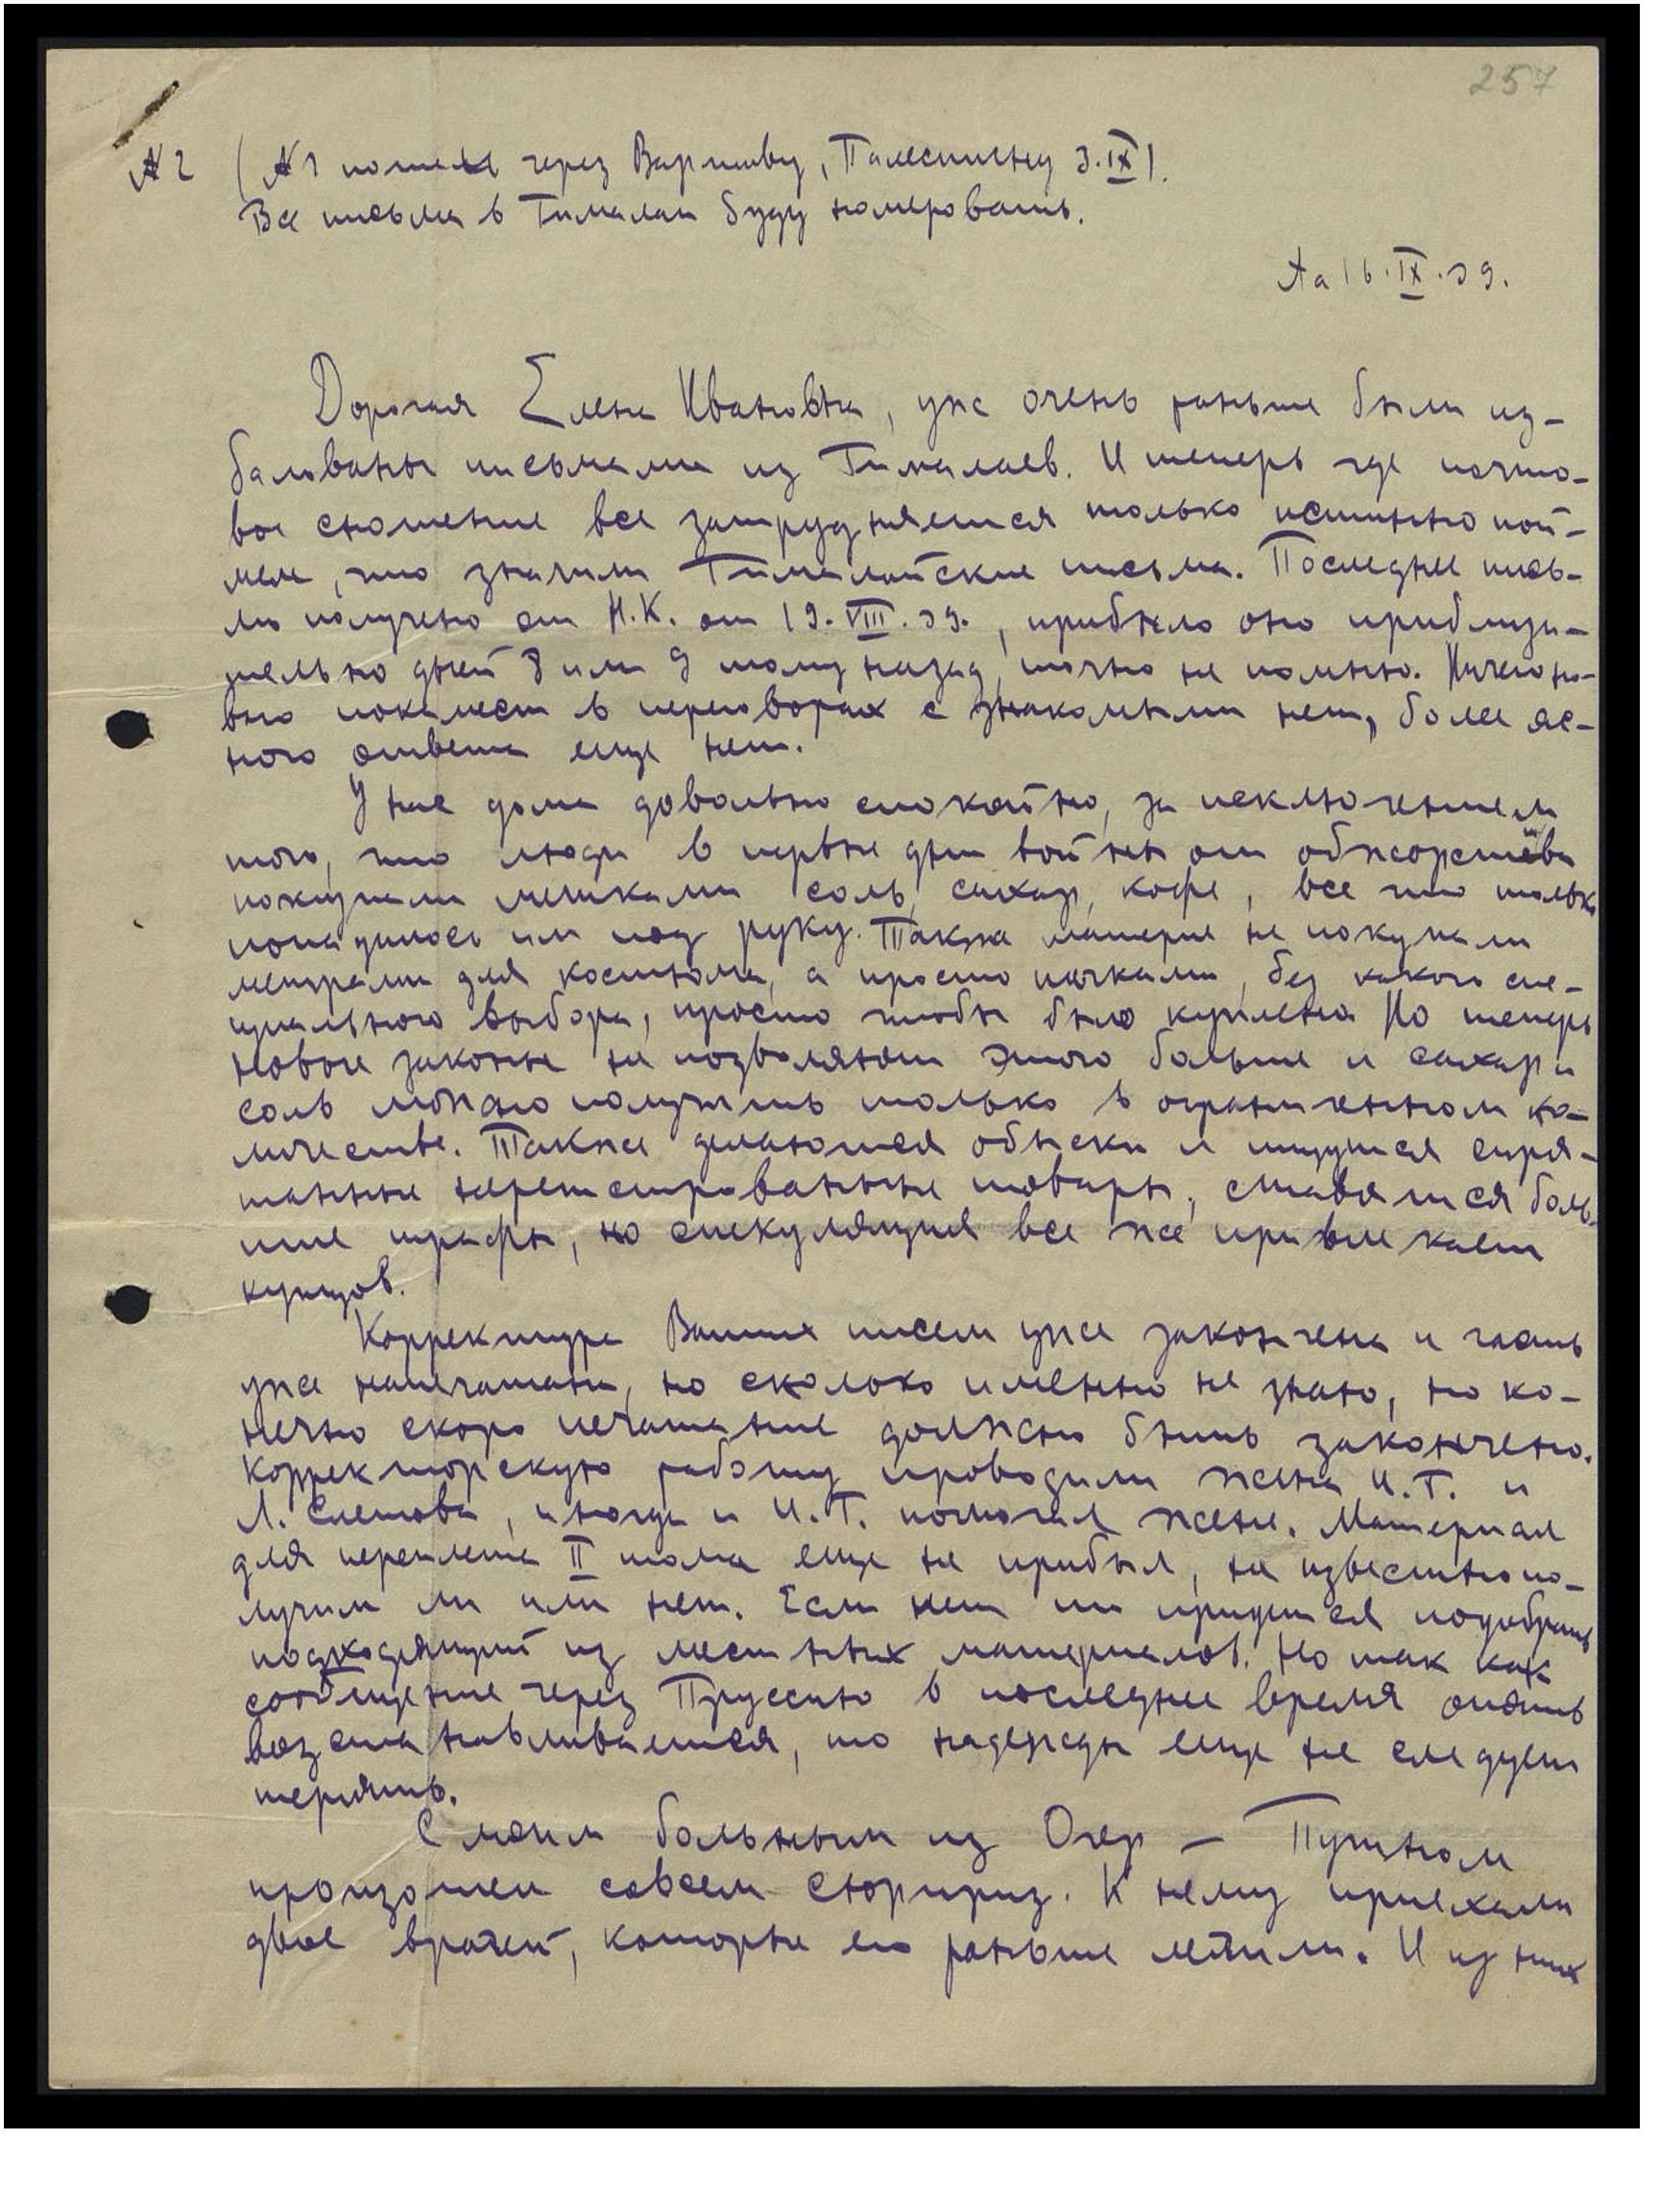 257
№ 2 (№ 1 пошло через Варшаву, Палестину 3.IX).
Все письма в Гималаи буду номеровать.
16.IX.39.
Дорогая Елена Ивановна, уже очень раньше были из-
балованы письмами из Гималаев. И теперь где почто-
вое сношение все затрудняется только истинно пой-
мем, что значили Гималайские письма. Последнее пись-
мо получено от Н.К. от 19.VIII.39., прибыло оно приблизи-
тельно дней 8 или 9 тому назад, точно не помню. Ничего но-
вого покамест в переговорах с знакомыми нет, более яс-
ного ответа еще нет.
У нас дома довольно спокойно, за исключением
того, что люди в первые дни войны от обжорства
покупали мешками соль, сахар, кофе, все что только
попадалось им под руку. Также материю не покупали
метрами для костюма, а просто пачками, без какого спе-
циального выбора, просто чтобы было куплено. Но теперь
новые законы не позволяют этого больше и сахар и
соль можно получить только в ограниченном ко-
личестве. Также делаются обыски и ищутся спря-
танные нерегистрированные товары, ставятся боль-
шие штрафы, но спекуляция все же привлекает
купцов.
Корректура Ваших писем уже закончена и часть
уже напечатана, но сколько именно не знаю, но ко-
нечно скоро печатание должно быть закончено.
Корректорскую работу проводили жена И.Г. и
Л. Слетова, иногда и И.Г. помогал жене. Материал
для переплета II тома еще не прибыл, не известно по-
лучим ли или нет. Если нет то придется подобрать
подходящий из местных материалов. Но так как
сообщение через Пруссию в последнее время опять
возстанавливается, то надежды еще не следует
терять.
С моим больным из Огер — Путным
произошел совсем сюрприз. К нему приехали
двое врачей, которые его раньше лечили. И из них